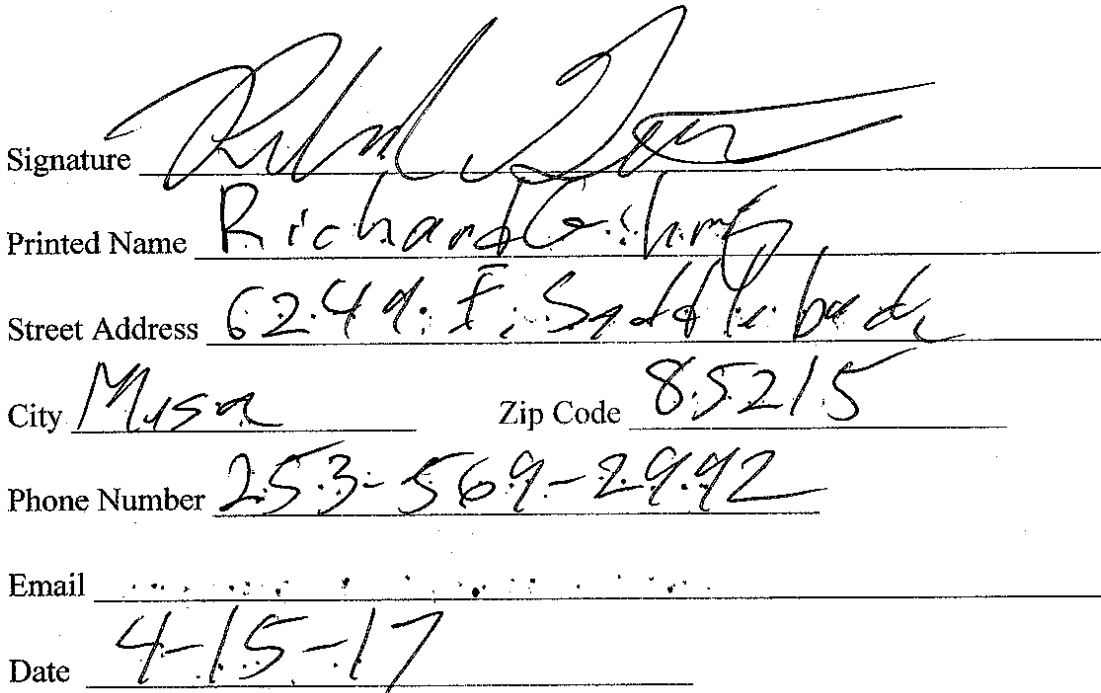 Signature
Printed Name Richard
Street Address 6249 E. Saddleback
City Mesa Zip Code 85215
Phone Number 253-569-2992
Email
Date 4-15-17